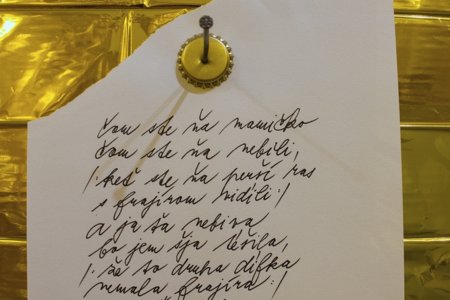 čom ste ňa mamičko
čom ste ňa nebili,
/: keš ste ňa perší ras
s frajírom vidili :/
a ja ťa nebiva
bo jem šja ťešila,
/: že to druha ďifka
nemala frajira :/